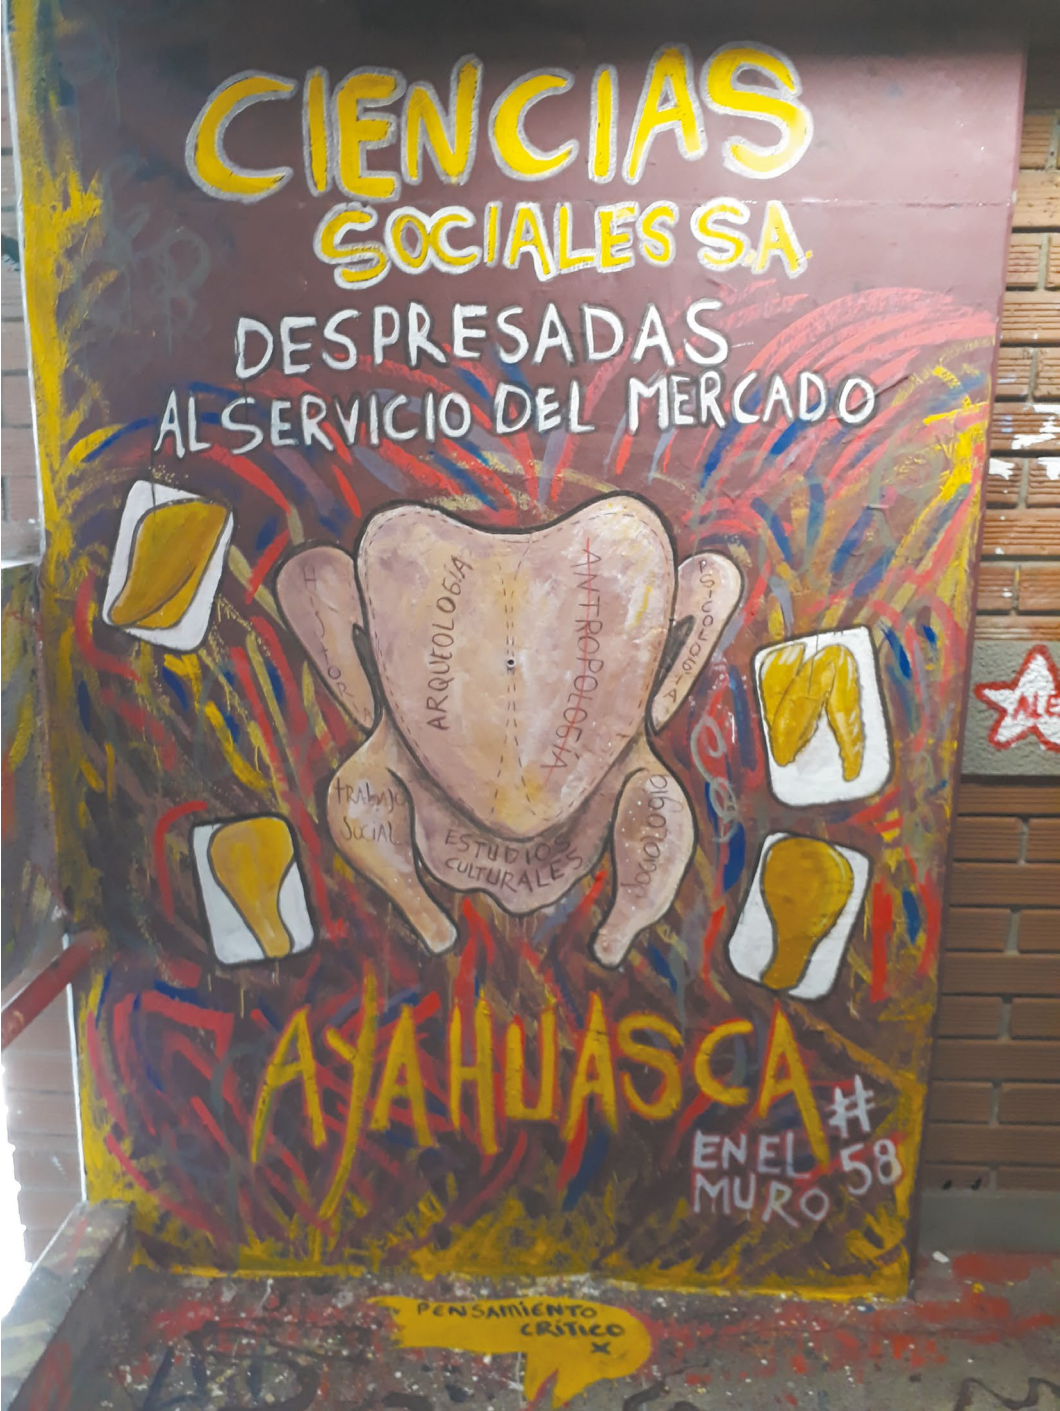 CIENCIAS
SOCIALES S.A.
DESPRESADAS
AL SERVICIO DEL MERCADO
ARQUEOLOGÍA
ANTROPOLOGÍA
PSICOLOGIA
TRABAJO
SOCIAL
ESTUDIOS
CULTURALES
SOCIOLOGIA
AYAHUASCA
EN EL
MURO
#
58
PENSAMIENTO
CRÍTICO
X
ALE